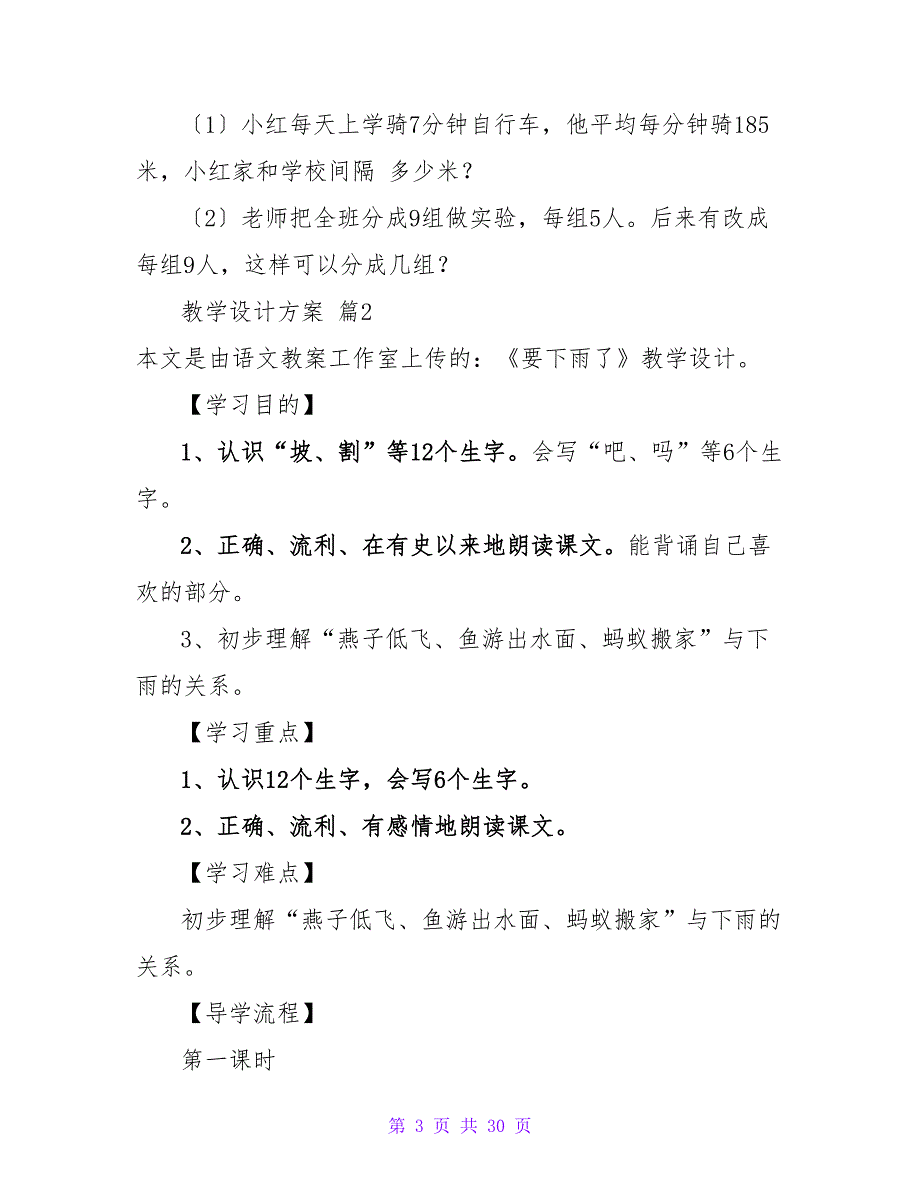 〔1〕小红每天上学骑7分钟自行车，他平均每分钟骑185
米，小红家和学校间隔 多少米？
〔2〕老师把全班分成9组做实验，每组5人。后来有改成
每组9人，这样可以分成几组？
教学设计方案 篇2
本文是由语文教案工作室上传的：《要下雨了》教学设计。
【学习目的】
1、认识“坡、割”等12个生字。会写“吧、吗”等6个生
字。
2、正确、流利、在有史以来地朗读课文。能背诵自己喜
欢的部分。
3、初步理解“燕子低飞、鱼游出水面、蚂蚁搬家”与下
雨的关系。
【学习重点】
1、认识12个生字，会写6个生字。
2、正确、流利、有感情地朗读课文。
【学习难点】
初步理解“燕子低飞、鱼游出水面、蚂蚁搬家”与下雨的
关系。
【导学流程】
第一课时
第 3 页 共 30 页